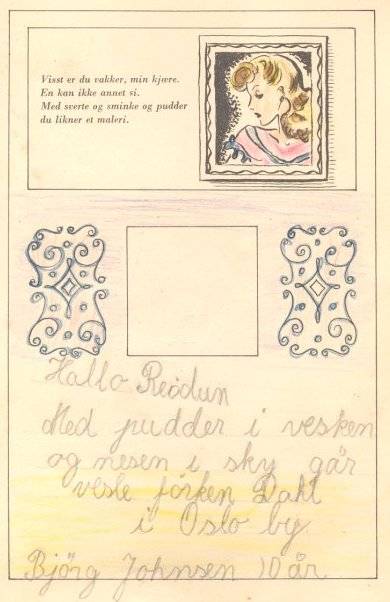 Visst er du vakker, min kjære.
En kan ikke annet si.
Med sverte og sminke og pudder
du likner et maleri.
Hallo Reidun
Med pudder i vesken
og nesen i sky går
vesle förken Dahl
i Oslo by
Björg Johnsen 10 år